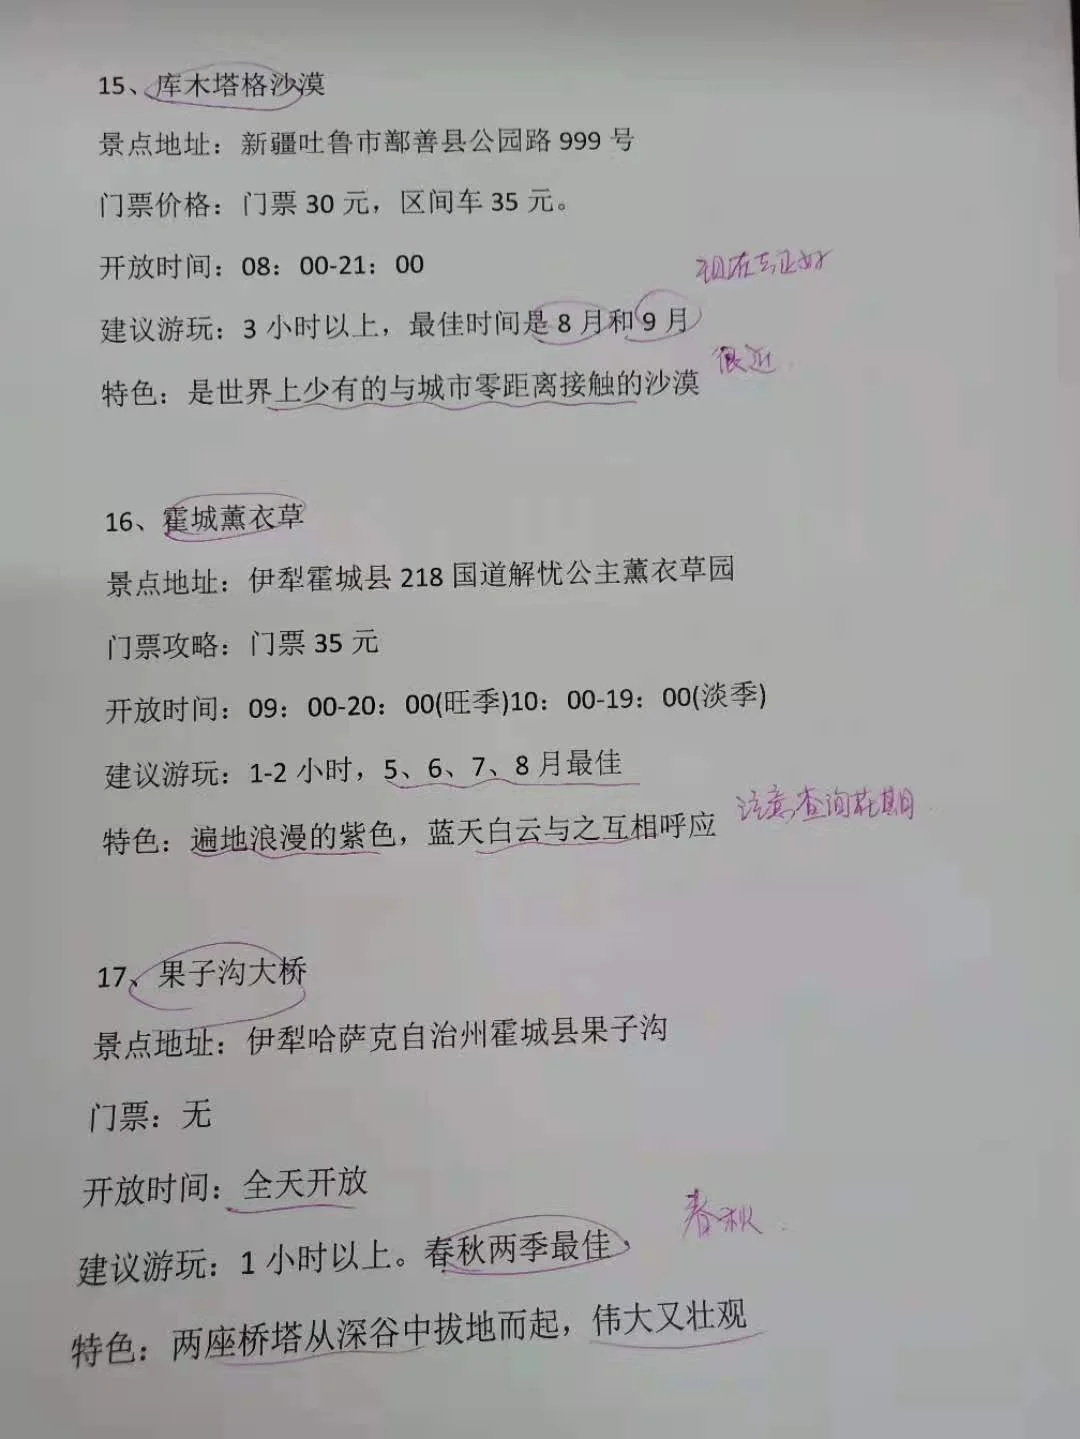 15、库木塔格沙漠
景点地址：新疆吐鲁市鄯善县公园路 999 号
门票价格：门票 30 元，区间车 35 元。
开放时间：08：00-21：00
现在去正好
建议游玩：3 小时以上，最佳时间是 8 月和 9 月
很近
特色：是世界上少有的与城市零距离接触的沙漠
16、霍城薰衣草
景点地址：伊犁霍城县 218 国道解忧公主薰衣草园
门票攻略：门票 35 元
开放时间：09：00-20：00(旺季)10：00-19：00(淡季)
建议游玩：1-2 小时，5、6、7、8 月最佳
注意查询花期
特色：遍地浪漫的紫色，蓝天白云与之互相呼应
17、果子沟大桥
景点地址：伊犁哈萨克自治州霍城县果子沟
门票：无
开放时间：全天开放
春秋
建议游玩：1 小时以上。春秋两季最佳
特色：两座桥塔从深谷中拔地而起，伟大又壮观